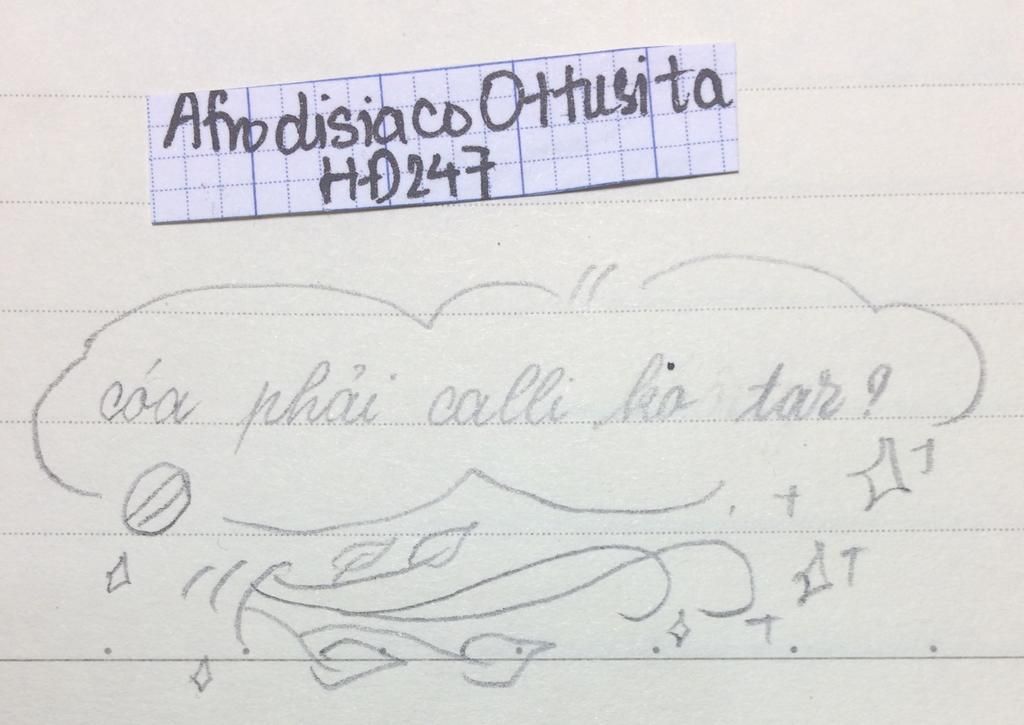 Afrodisiaco Ottusita
HĐ247
cóa phải calli ko tar?